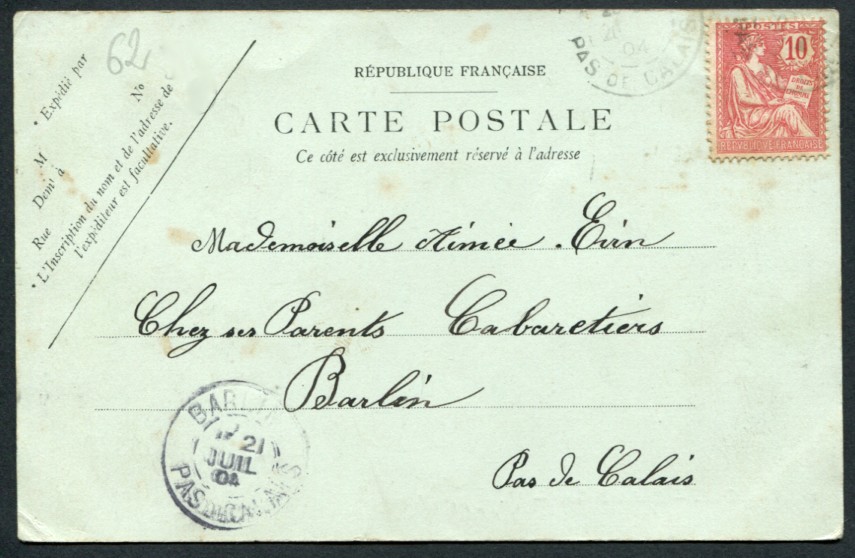 62
* Expédié par
No
M
Demt à
Rue
* L'Inscription du nom et de l'adresse de
l'expéditeur est facultative.
RÉPUBLIQUE FRANÇAISE
CARTE POSTALE
Ce côté est exclusivement réservé à l'adresse
04
PAS DE CALAIS
POSTES
10
DROITS
DE
L'HOMME
REPUBLIQUE FRANÇAISE
Mademoiselle Aimée Evin
Chez ses Parents Cabaretiers
Barlin
Pas de Calais
BARLIN
21
JUIL
04
PAS DE CALAIS